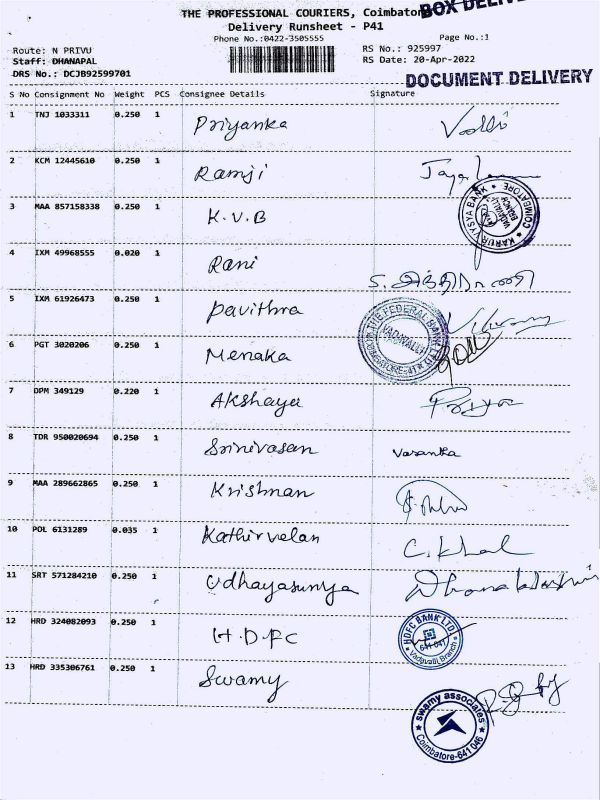 THE PROFESSIONAL COURIERS, Coimbator
BOX DELIVE
Delivery Runsheet - P41
Phone No.:0422-3505555
Page No.:1
Route: N PRIVU
RS No.: 925997
Staff: DHANAPAL
RS Date: 20-Apr-2022
DRS No.: DCJB92599701
DOCUMENT DELIVERY
S No Consignment No Weight PCS Consignee Details Signature
1 TNJ 1033311 0.250 1 Priyanka
2 KCM 12445610 0.250 1 Ramji
3 MAA 857158338 0.250 1 K.V.B
KARUR VYSYA BANK VADAVALLI BRANCH COIMBATORE
4 IXM 49968555 0.020 1 Rani
5 IXM 61926473 0.250 1 Pavithra
THE FEDERAL BANK LTD VADAVALLI COIMBATORE-41
6 PGT 3020206 0.250 1 Menaka
7 DPM 349129 0.220 1 Akshaya
Priya
8 TDR 950020694 0.250 1 Srinivasan
Varanka
9 MAA 289662865 0.250 1 Krishnan
10 POL 6131289 0.035 1 Kathirvelan
11 SRT 571284210 0.250 1 Udhayasuriya
12 HRD 324082093 0.250 1 H.D.F.C
HDFC BANK LTD. 641 041 Vadavalli Branch
13 HRD 335306761 0.250 1 Swamy
swamy associates Coimbatore-641 046